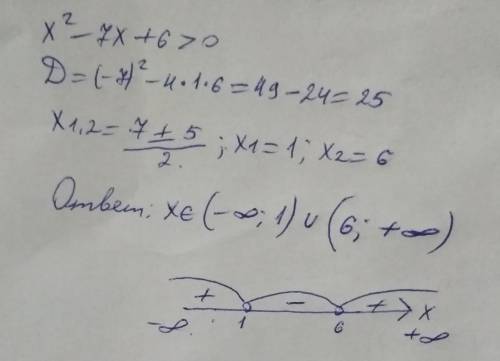 x² - 7x + 6 > 0
D = (-7)² - 4·1·6 = 49 - 24 = 25
x1,2 = (7 ± 5)/2 ; x1 = 1; x2 = 6
Ответ: x ∈ (-∞; 1) ∪ (6; +∞)
+ - + x
-∞ 1 6 +∞